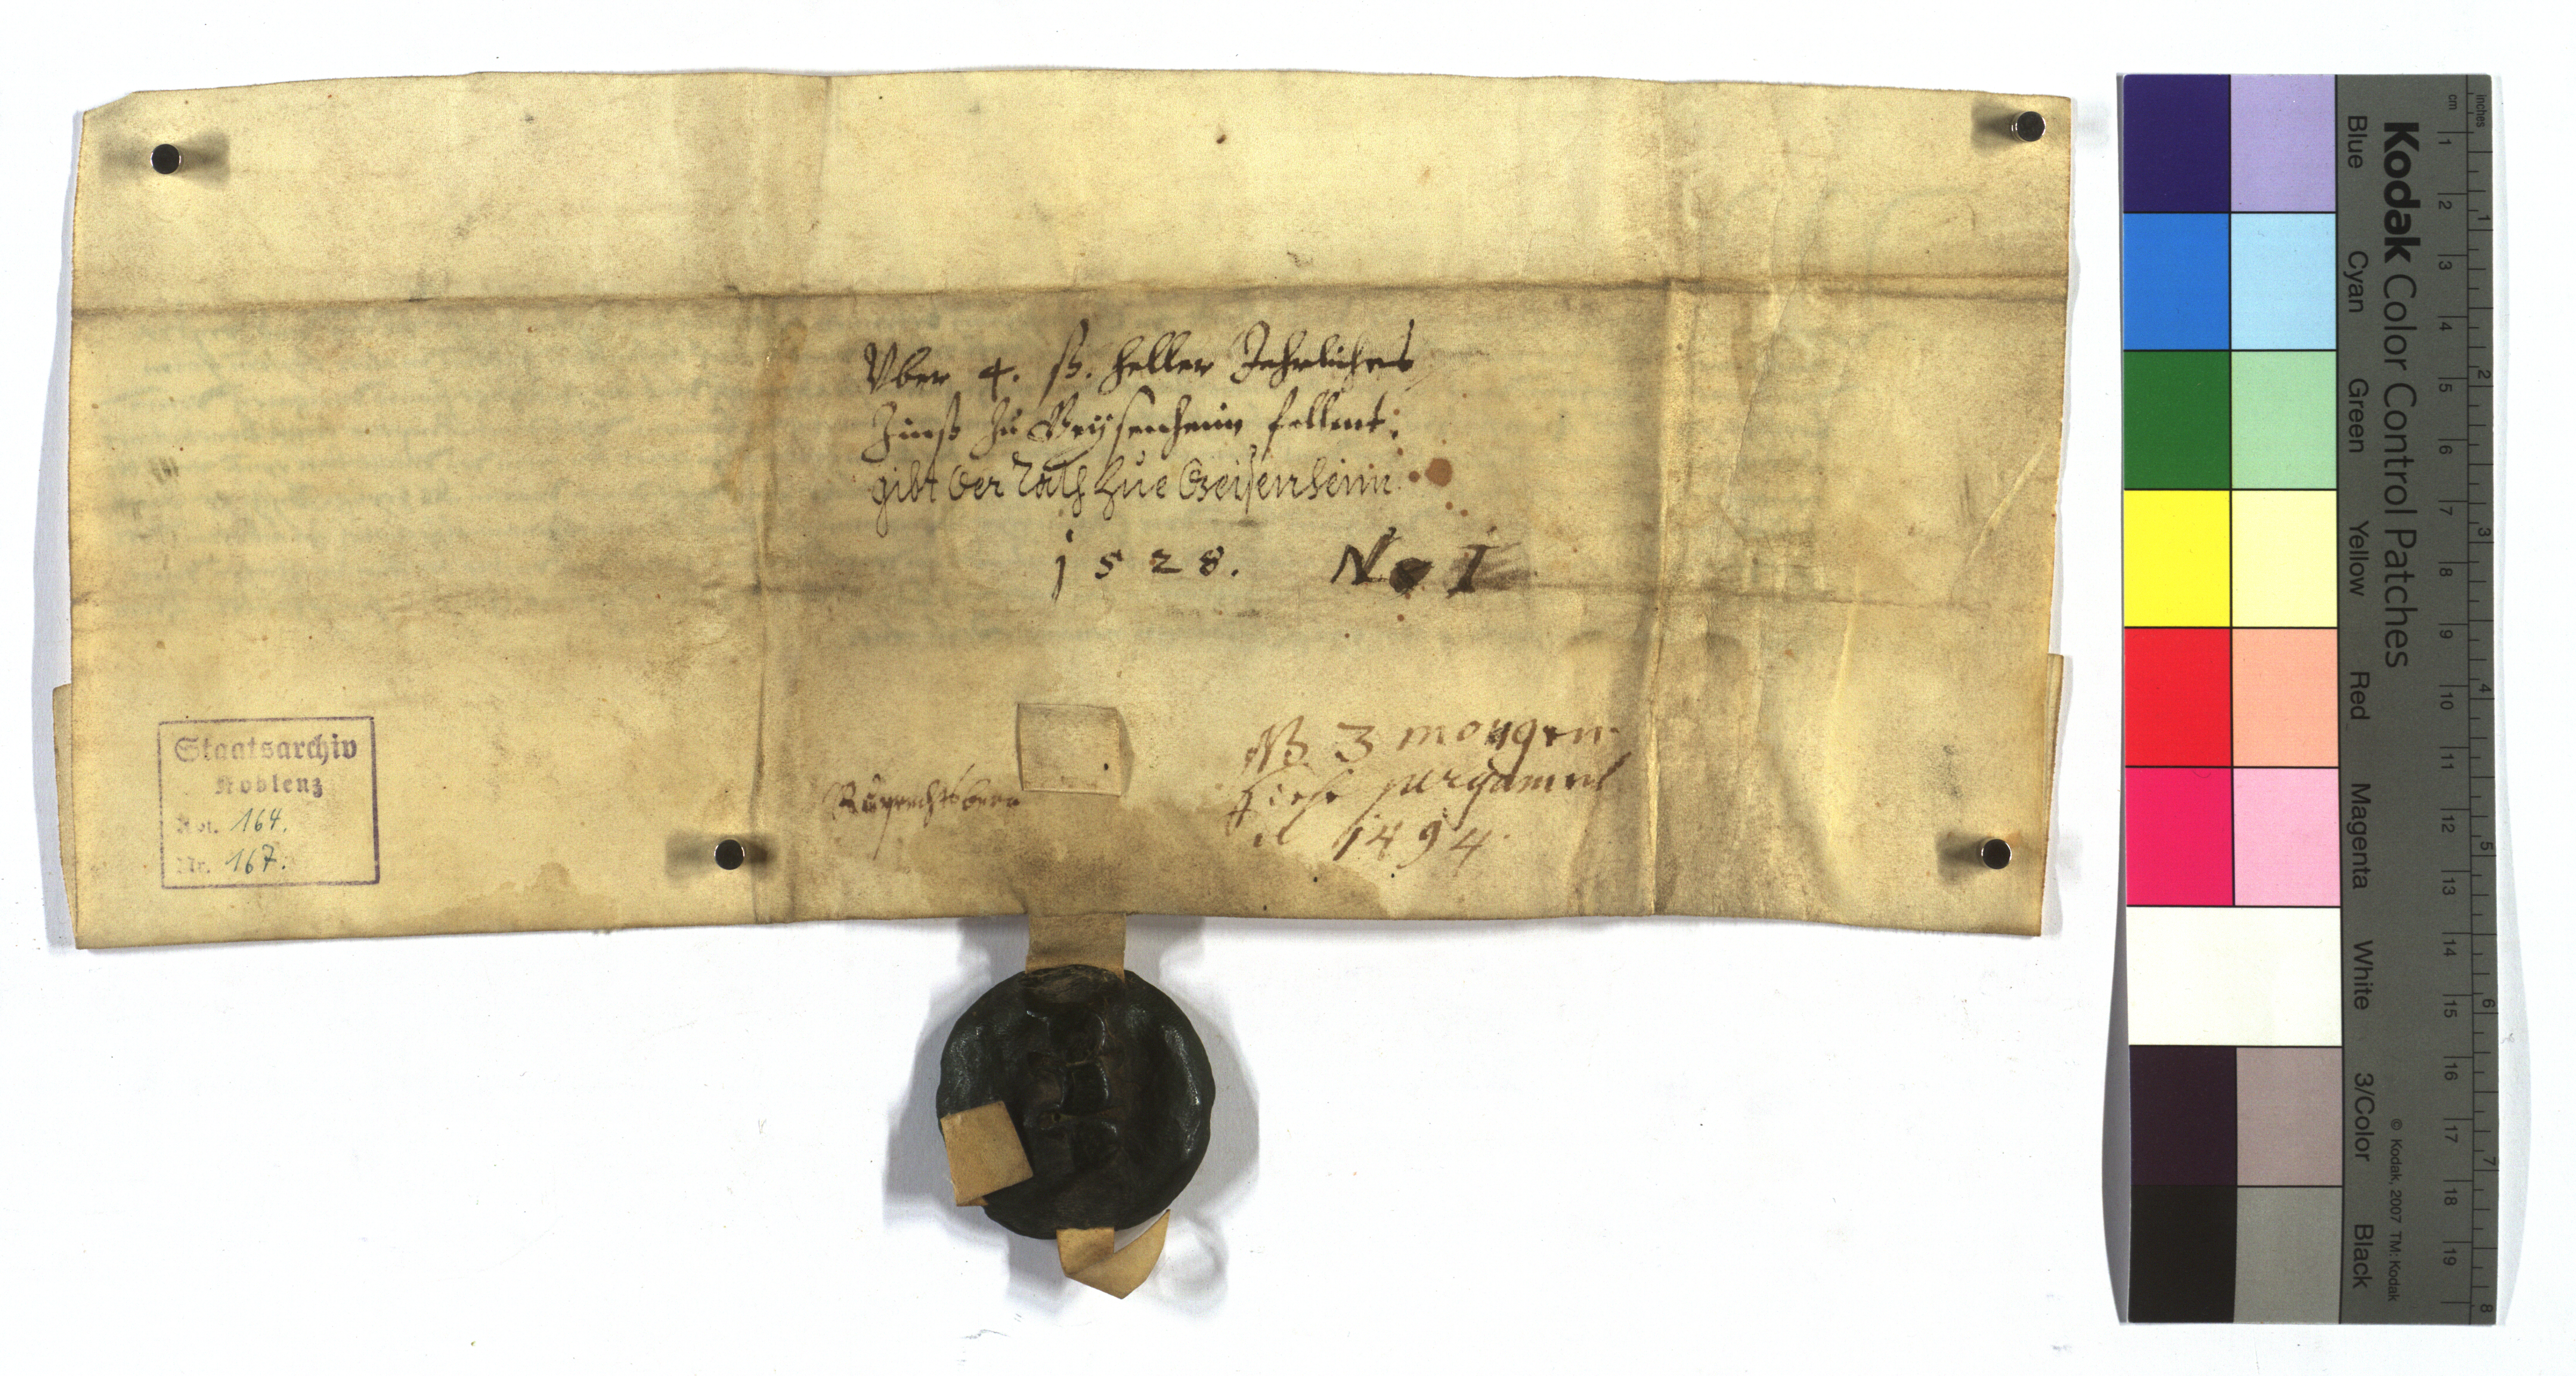 Vber 4. ß. heller Jehrliches
Zinß zu Geysenheim fellent.
gibt der Rath zue Geisenheim
1528. No I
NB 3 morgen
pergament
1494.
Ruprechtsberg
Staatsarchiv
Koblenz
Abt. 164.
Nr. 167.
Kodak Color Control Patches
Blue Cyan Green Yellow Red Magenta White 3/Color Black
© Kodak, 2007 TM: Kodak
inches 1 2 3 4 5 6 7 8
cm 1 2 3 4 5 6 7 8 9 10 11 12 13 14 15 16 17 18 19